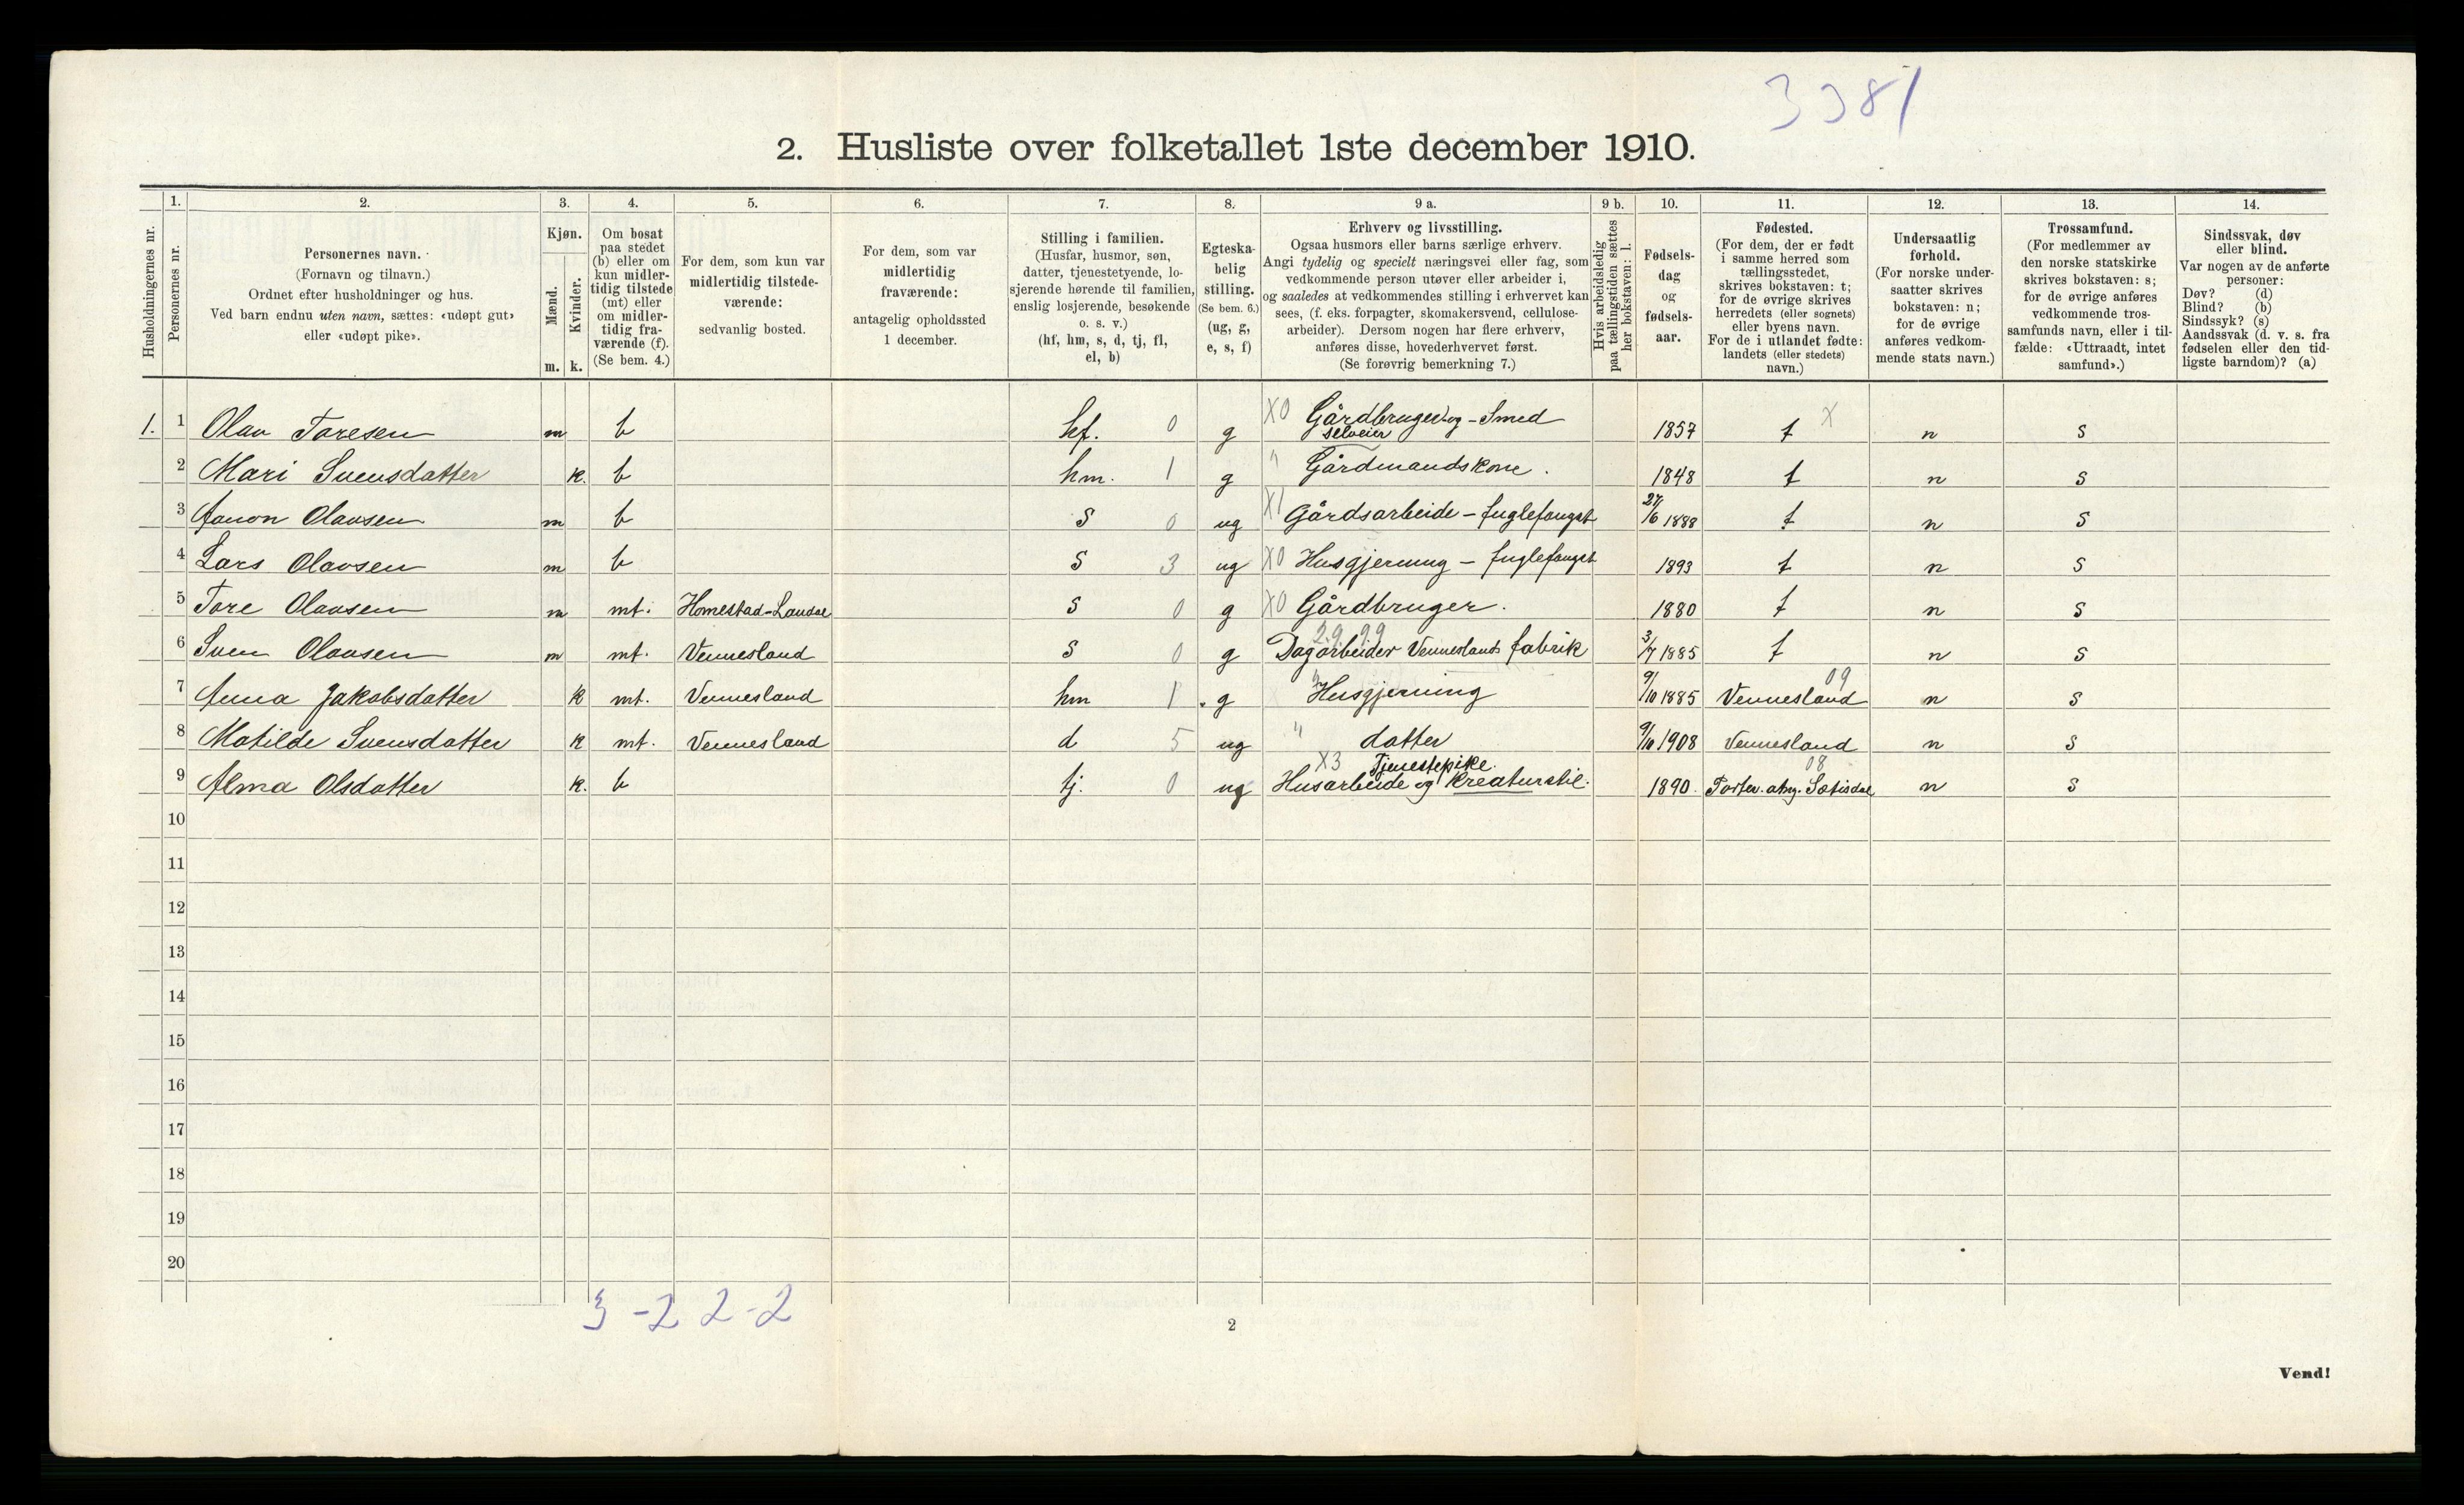 3381
2. Husliste over folketallet 1ste december 1910.
Husholdningernes nr.
1.
Personernes nr.
2.
Personernes navn.
(Fornavn og tilnavn.)
Ordnet efter husholdninger og hus.
Ved barn endnu uten navn, sættes: «udøpt gut»
eller «udøpt pike».
3.
Kjøn.
Mænd.
Kvinder.
m. k.
4.
Om bosat
paa stedet
(b) eller om
kun midler-
tidig tilstede
(mt) eller
om midler-
tidig fra-
værende (f).
(Se bem. 4.)
5.
For dem, som kun var
midlertidig tilstede-
værende:
sedvanlig bosted.
6.
For dem, som var
midlertidig
fraværende:
antagelig opholdssted
1 december.
7.
Stilling i familien.
(Husfar, husmor, søn,
datter, tjenestetyende, lo-
sjerende hørende til familien,
enslig losjerende, besøkende
o. s. v.)
(hf, hm, s, d, tj, fl,
el, b)
8.
Egteska-
belig
stilling.
(Se bem. 6.)
(ug, g,
e, s, f)
9 a.
Erhverv og livsstilling.
Ogsaa husmors eller barns særlige erhverv.
Angi tydelig og specielt næringsvei eller fag, som
vedkommende person utøver eller arbeider i,
og saaledes at vedkommendes stilling i erhvervet kan
sees, (f. eks. forpagter, skomakersvend, cellulose-
arbeider). Dersom nogen har flere erhverv,
anføres disse, hovederhvervet først.
(Se forøvrig bemerkning 7.)
9 b.
Hvis arbeidsledig
paa tællingstiden sættes
her bokstaven: l.
10.
Fødsels-
dag
og
fødsels-
aar.
11.
Fødested.
(For dem, der er født
i samme herred som
tællingsstedet,
skrives bokstaven: t;
for de øvrige skrives
herredets (eller sognets)
eller byens navn.
For de i utlandet fødte:
landets (eller stedets)
navn.)
12.
Undersaatlig
forhold.
(For norske under-
saatter skrives
bokstaven: n;
for de øvrige
anføres vedkom-
mende stats navn.)
13.
Trossamfund.
(For medlemmer av
den norske statskirke
skrives bokstaven: s;
for de øvrige anføres
vedkommende tros-
samfunds navn, eller i til-
fælde: «Uttraadt, intet
samfund».)
14.
Sindssvak, døv
eller blind.
Var nogen av de anførte
personer:
Døv? (d)
Blind? (b)
Sindssyk? (s)
Aandssvak (d. v. s. fra
fødselen eller den tid-
ligste barndom)? (a)
1. 1 Olav Toresen m b hf. 0 g X0 Gårdbruger og - Smed selveier 1857 t X n s
2 Mari Svensdatter k. b hm. 1 g " Gårdmandskone. 1848 t n s
3 Aanon Olavsen m b s 0 ug X1 Gårdsarbeide - fuglefangst 27/6 1888 t n s
4 Lars Olavsen m b s 3 ug X0 Husgjerning - fuglefangst 1893 t n s
5 Tore Olavsen m mt. Homestad-Laudal s 0 g X0 Gårdbruger. 1880 t n s
6 Sven Olavsen m mt. Vennesland s 0 g Dagarbeider Venneslands fabrik 3/7 1885 t n s
7 Anna Jakobsdatter k mt. Vennesland hm 1 g " Husgjerning 9/10 1885 Vennesland 09 n s
8 Matilde Svensdatter k mt. Vennesland d 5 ug " datter 9/10 1908 Vennesland n s
9 Alma Olsdatter k. b tj. 0 ug X3 Tjenestepike. Husarbeide og kreaturstil. 1890. 08 Sætisdal n s
10
11
12
13
14
15
16
17
18
19
20
3-2 2-2
2
Vend!